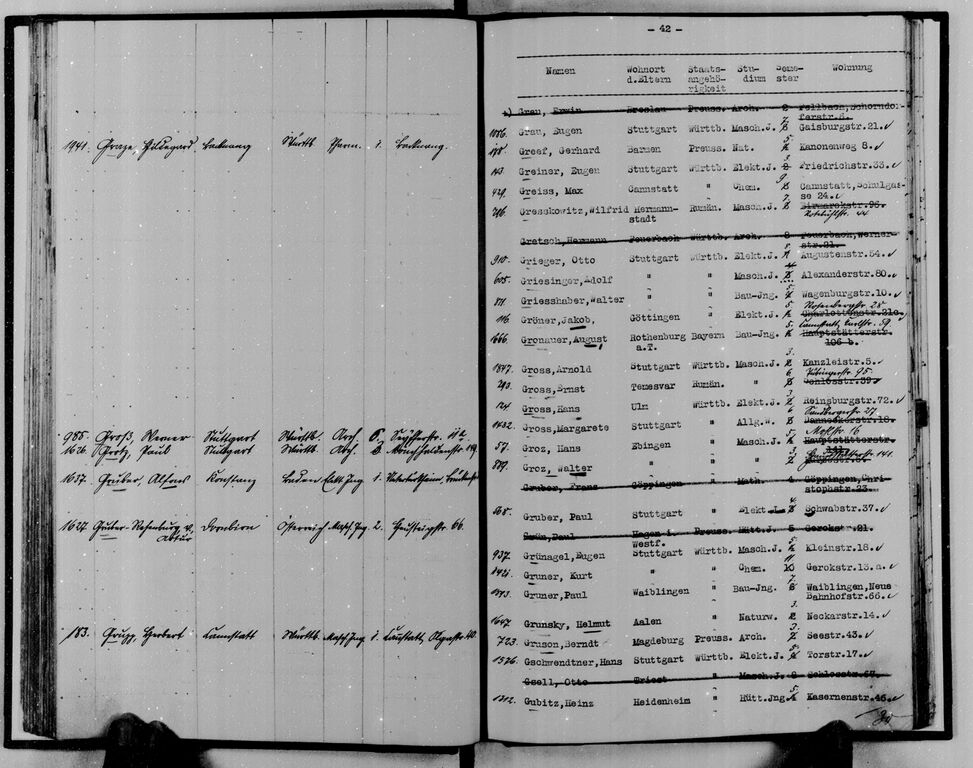 1941. Graze, Hildegard Backnang Württb Pharm. 1. Backnang.
985. Groß, Werner Stuttgart Württb. Arch
1626. Grotz, Paul Stuttgart Württb. Arch
1657. Gruber, Alfons Konstanz Baden Elekt Ing 1.
1627. Gruber-Rehenburg, v. Dornbirn Österreich Masch. Ing 2. 66.
Artur
183. Grupp, Herbert Cannstatt Württb. Masch Ing 1. Cannstatt,
- 42 -
Namen Wohnort Staats- Stu- Seme- Wohnung
d.Eltern angehö- dium ster
rigkeit
Grau, Erwin Breslau Preuss. Arch. 8 Fellbach, Schorndor-
ferstr.8.
1056. Grau, Eugen Stuttgart Württb. Masch.J. 7. Gaisburgstr.21.
Greef, Gerhard Barmen Preuss. Nat. Kanonenweg 8.
143 Greiner, Eugen Stuttgart Württb. Elekt.J. 3. Friedrichstr.33.
429. Greiss, Max Cannstatt " Chem. 9. Cannstatt,Schulgas-
se 24.
216. Gresskowitz,Wilfrid Hermann- Rumän. Masch.J. 7. Bismarckstr.96.
stadt Rotebühlstr. 44
Gretsch,Hermann Feuerbach Württb. Arch. 8 Feuerbach,Werner-
str.21.
910. Grieger, Otto Stuttgart Württb. Elekt.J. Augustenstr.54.
605. Griesinger,Adolf " " Masch.J. Alexanderstr.80.
811. Griesshaber,Walter " " Bau-Jng. 5. Wagenburgstr.10.
Rosenbergstr. 28
116. Gröner,Jakob, Göttingen " Elekt.J. 5. Charlottenstr.21c.
Cannstatt, Karlstr. 59.
1666. Gronauer,August Rothenburg Bayern Bau-Jng. 5. Hauptstätterstr.
a.T. 106 b.
1847. Gross,Arnold Stuttgart Württb. Masch.J. 3. Kanzleistr.5.
Tübingerstr 95.
290. Gross,Ernst Temesvar Rumän. " 6 Schlosstr.39
124 Gross,Hans Ulm Württb. Elekt.J. 3. Reinsburgstr.72.
27
1432. Gross,Margarete Stuttgart " Allg.W. 6 Danneckerstr.18.
16
57. Groz, Hans Ebingen " Masch.J. 5. Hauptstätterstr.
141.
559. Groz, Walter " " "
Gruber, Franz Göppingen " Math. 4 Göppingen,Chri-
stophstr.23.
568. Gruber, Paul Stuttgart " Elekt.J. 4. Schwabstr.37.
Grün,Paul Hagen i. Preuss. Hütt.J. 5 Gerokstr.21.
Westf.
937. Grünagel,Eugen Stuttgart Württb. Masch.J. Kleinstr.18.
1421. Gruner, Kurt " " Chem. 11 Gerokstr.13.a.
1843. Gruner,Paul Waiblingen " Bau-Jng. 7. Waiblingen,Neue
Bahnhofstr.66.
1667 Grunsky, Helmut Aalen " Naturw. 3. Neckarstr.14.
723. Gruson,Berndt Magdeburg Preuss. Arch. 3. Seestr.43.
1376. Gschwendtner,Hans Stuttgart Württb. Elekt.J. 5. Torstr.17.
Gsell, Otto Triest " Masch.J. 8 Schlosstr.67.
1312. Gubitz,Heinz Heidenheim " Hütt.Jng. 5. Kasernenstr.46.